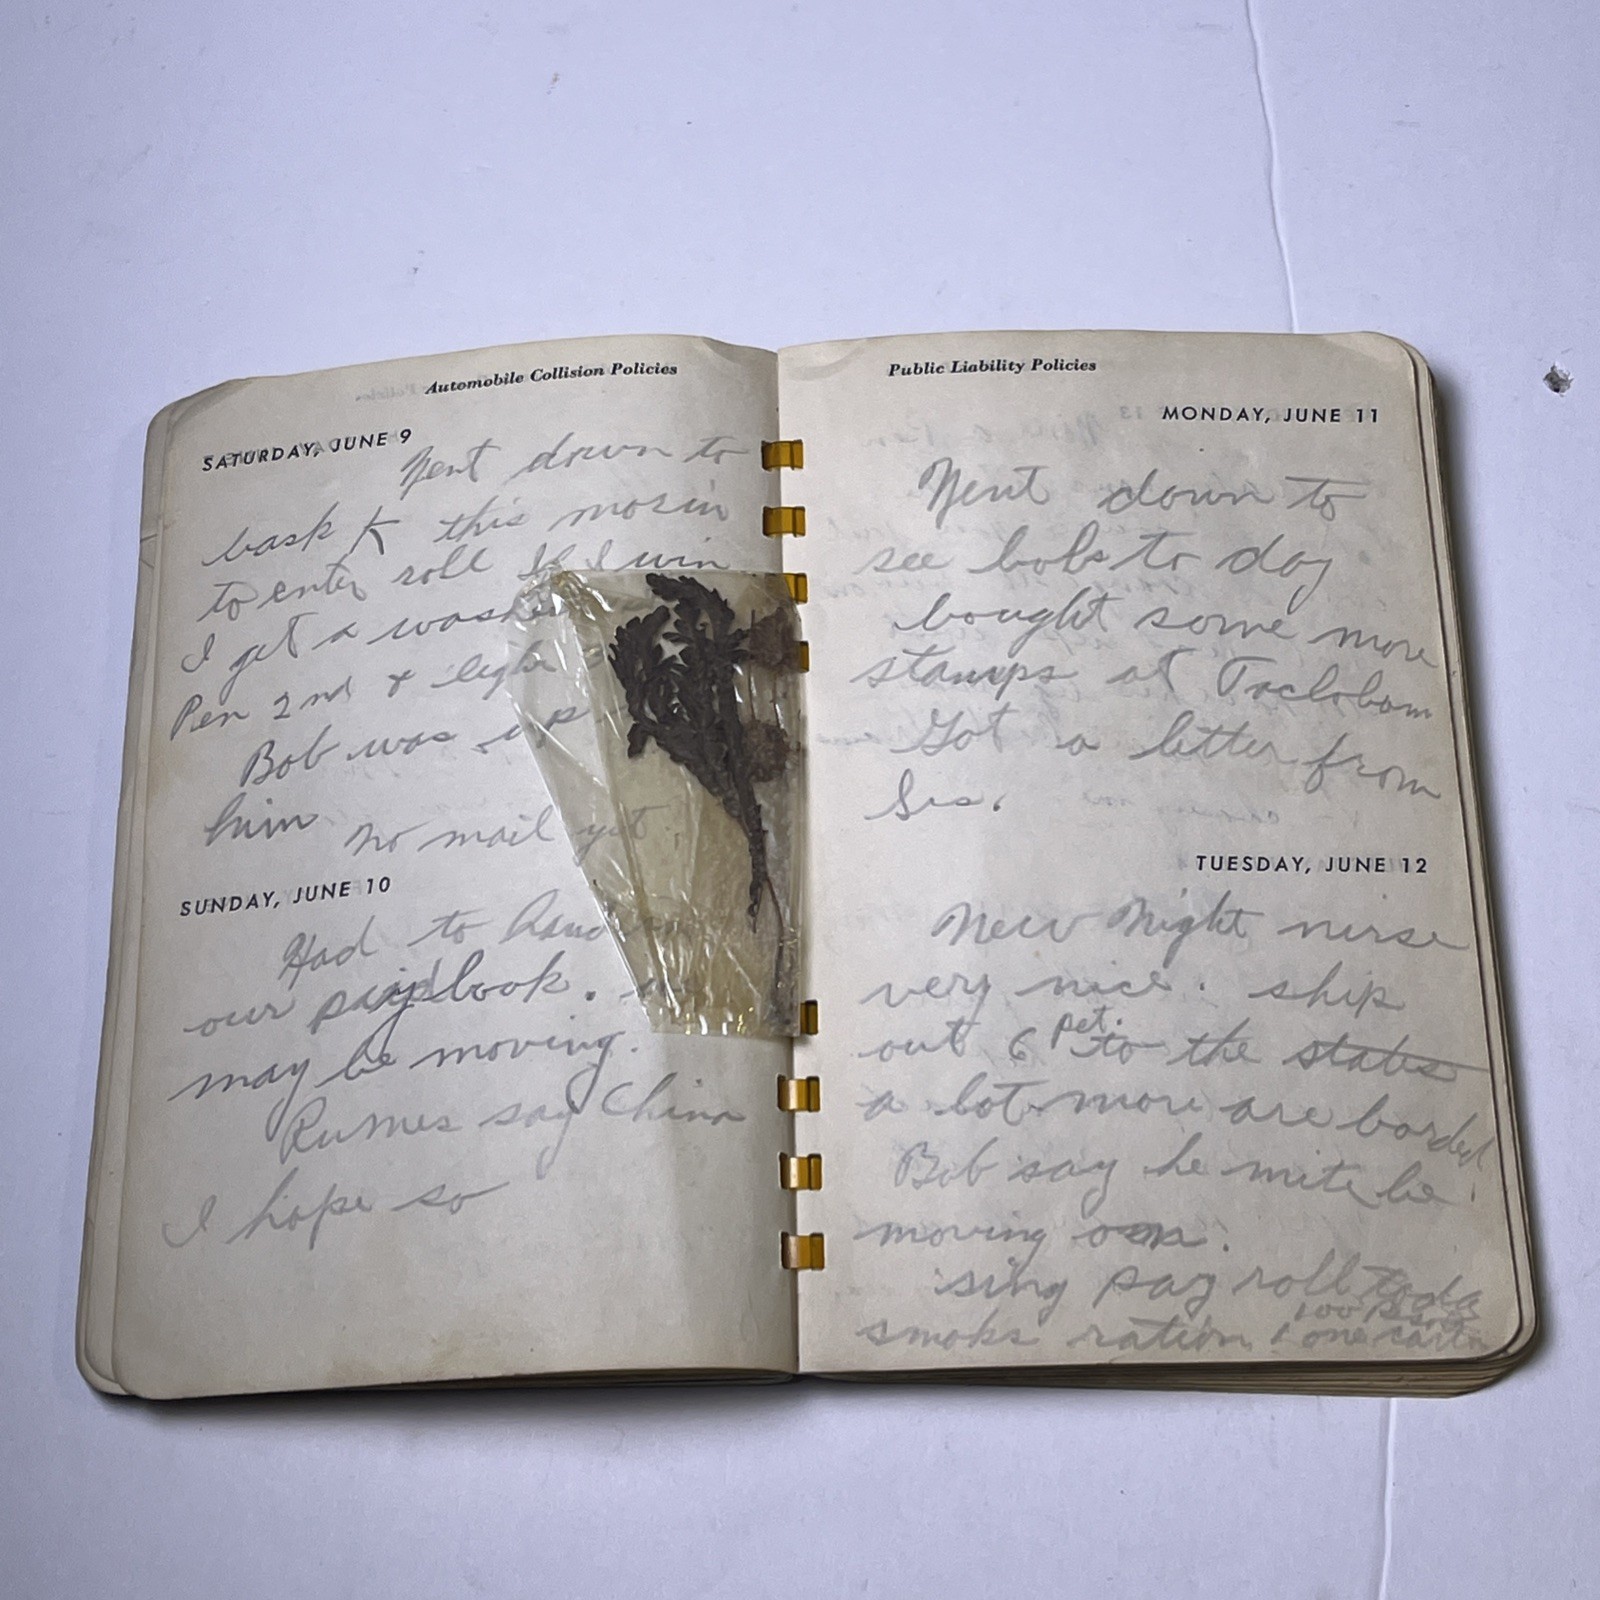 Automobile Collision Policies
SATURDAY, JUNE 9
Went down to
bask K this mornin
to enter roll If I win
I get a washin
Pen 2nd &
Bob was up
him no mail yet
SUNDAY, JUNE 10
Had to
our paybook.
may be moving.
Rumes say China
I hope so
Public Liability Policies
MONDAY, JUNE 11
Went down to
see bobs to day
bought some more
stamps at Tacloban
Got a letter from
Sis.
TUESDAY, JUNE 12
New Night nurse
very nice. ship
out 6 pet. to the states
a lot more are borded
Bob say he mite be
moving on.
sing pay roll toda
100 Pesos
smoks ration 1 one carto